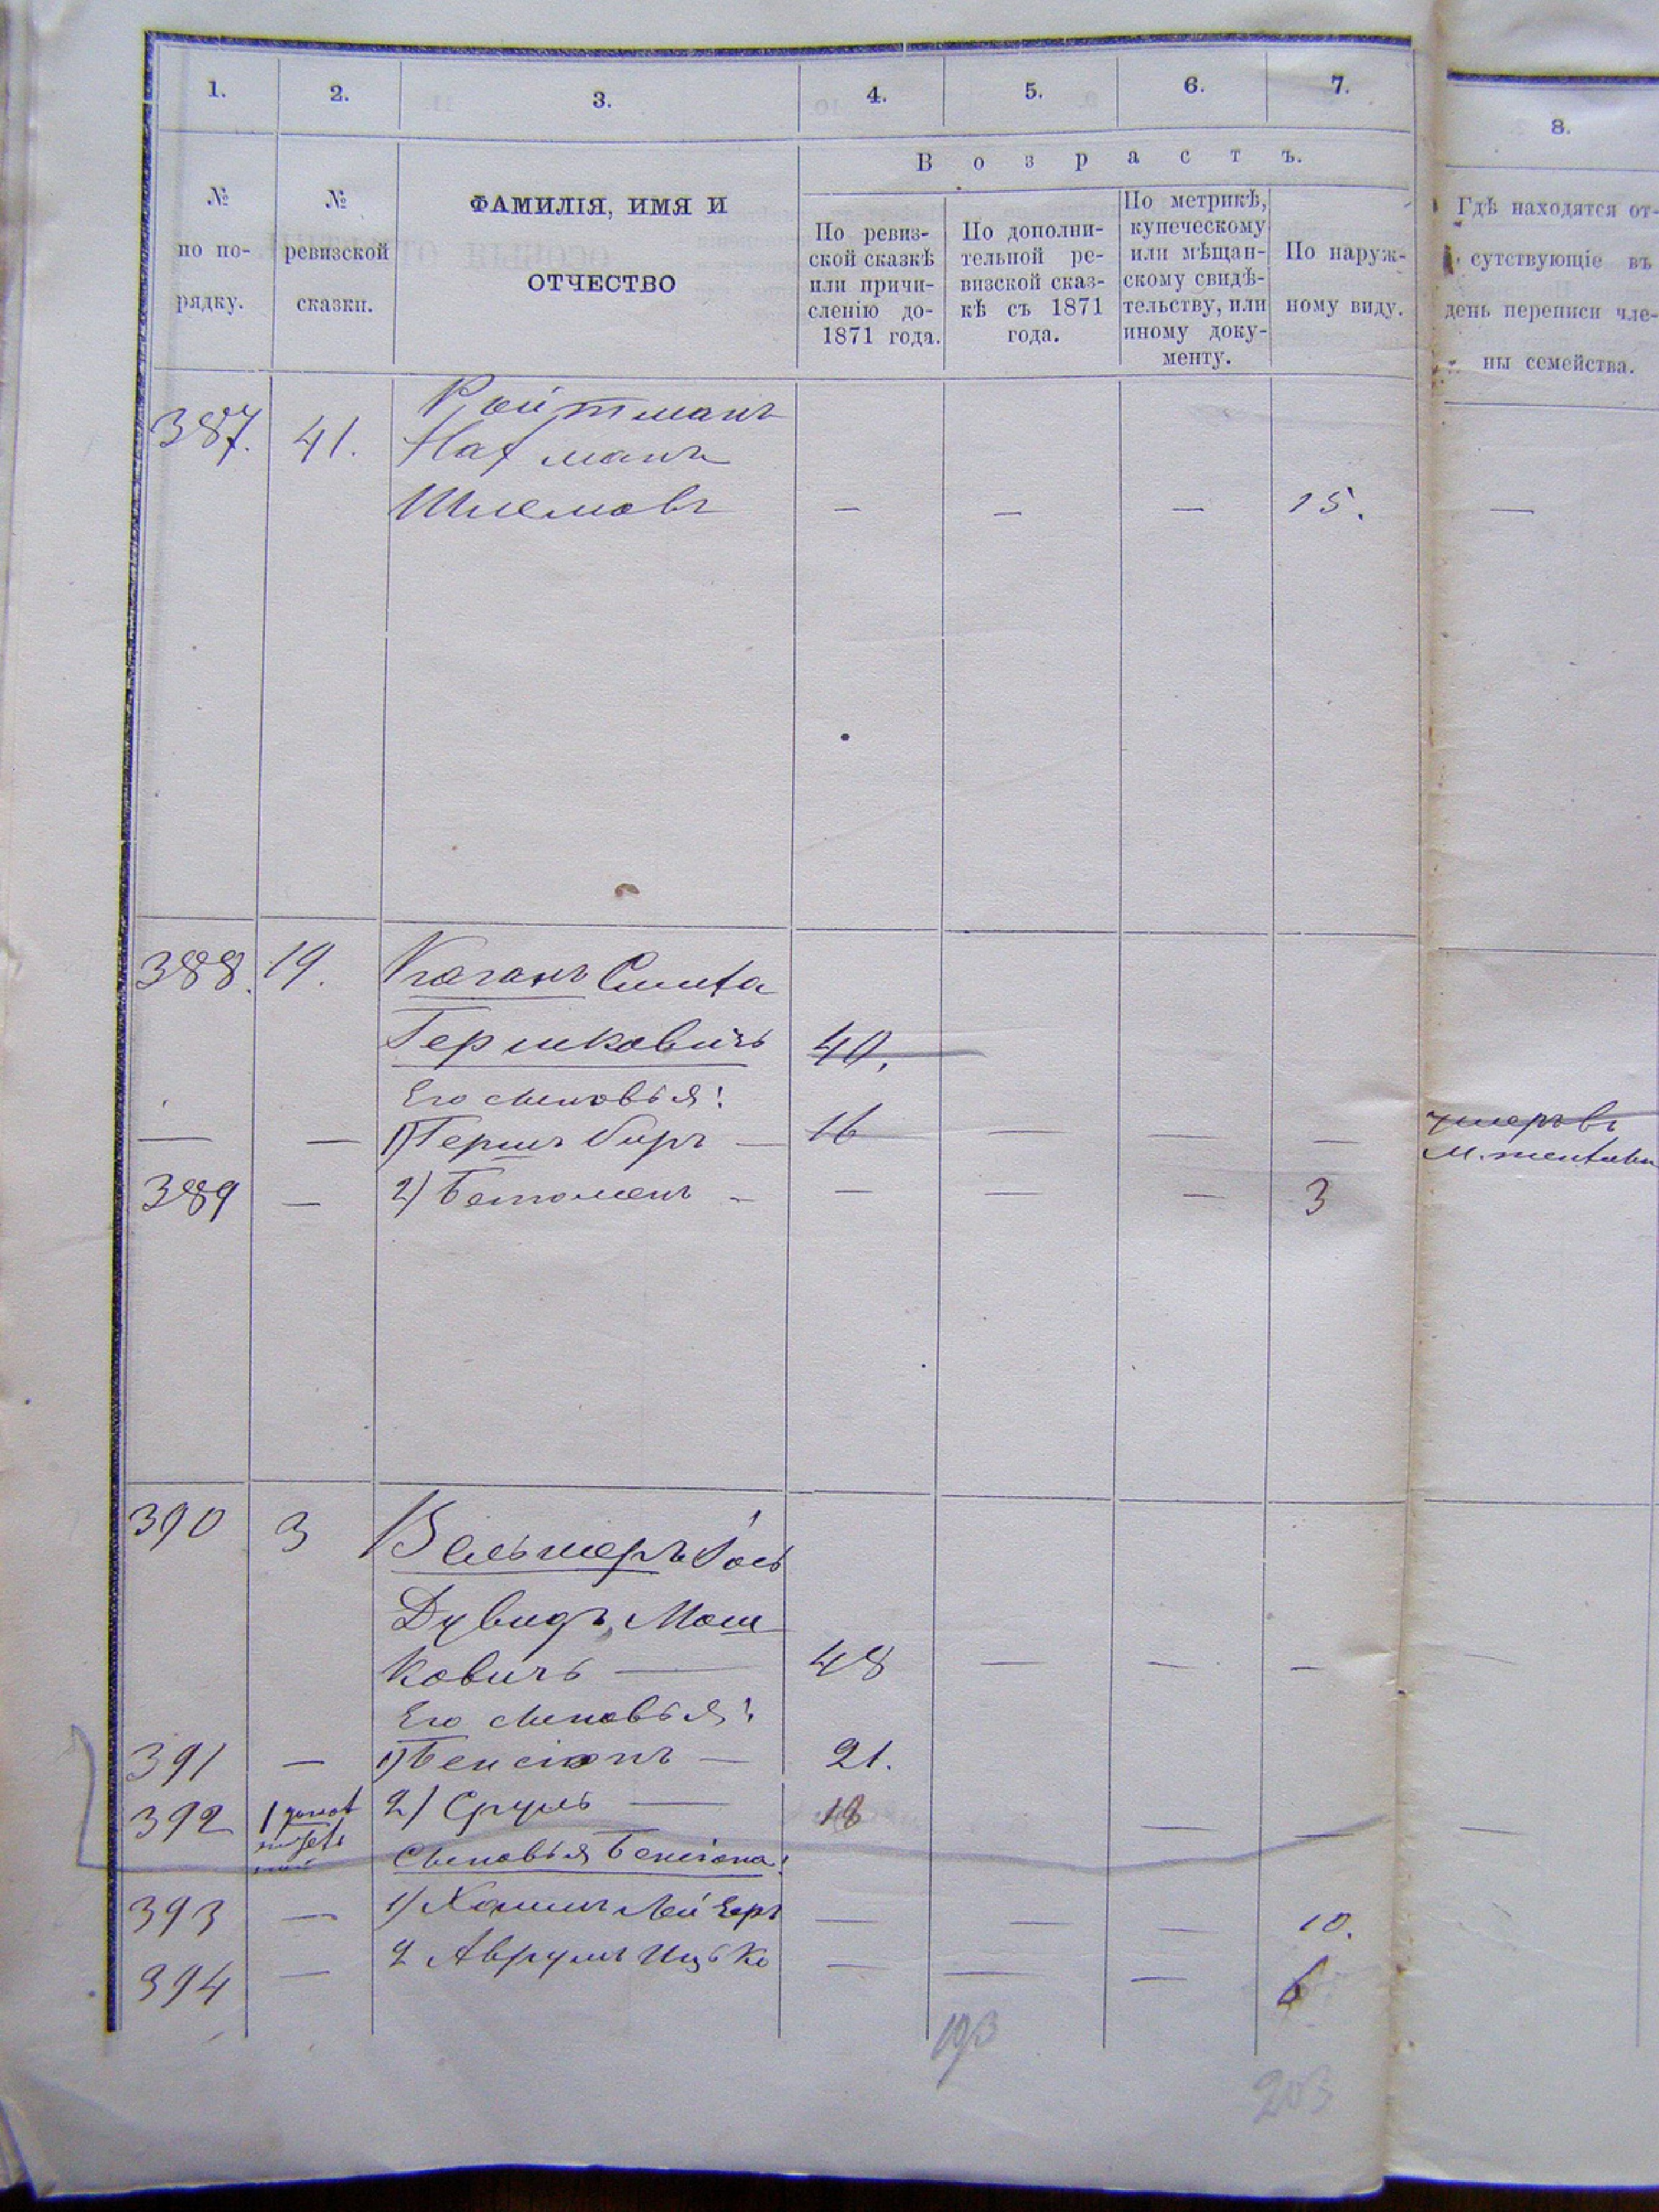 1. 2. 3. 4. 5. 6. 7. 8.
№ по порядку.
№ ревизской сказки.
ФАМИЛІЯ, ИМЯ И
ОТЧЕСТВО
Возрастъ.
По ревиз-
ской сказкѣ
или причи-
сленію до-
1871 года.
По дополни-
тельной ре-
визской сказ-
кѣ съ 1871
года.
По метрикѣ,
купеческому
или мѣщан-
скому свидѣ-
тельству, или
иному доку-
менту.
По наруж-
ному виду.
Гдѣ находятся от-
сутствующіе въ
день переписи чле-
ны семейства.
Ройтманъ
387. 41. Нахманъ
Шлемовъ — — — 15. —
388. 19. Коганъ Симха
Гершковичъ 40.
Его сыновья:
— — 1) Герш Беръ — 16 — — — умеръ въ
389 — 2) Бетомень — — — — 3
390 3 Вельшеръ Іось
Дувидъ Мош
ковичъ — 48 — — — —
Его сыновья:
391 — 1) Бенсіонъ — 21.
392 2) Сруль — 18 — — —
Сыновья Бенсіона:
393 — 1) Хаимъ Лейзеръ — — — 10.
394 — 2 Аврумъ Ицько — — — 6
193
203